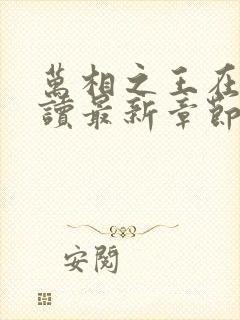 萬相之王在
讀最新章節
安閱